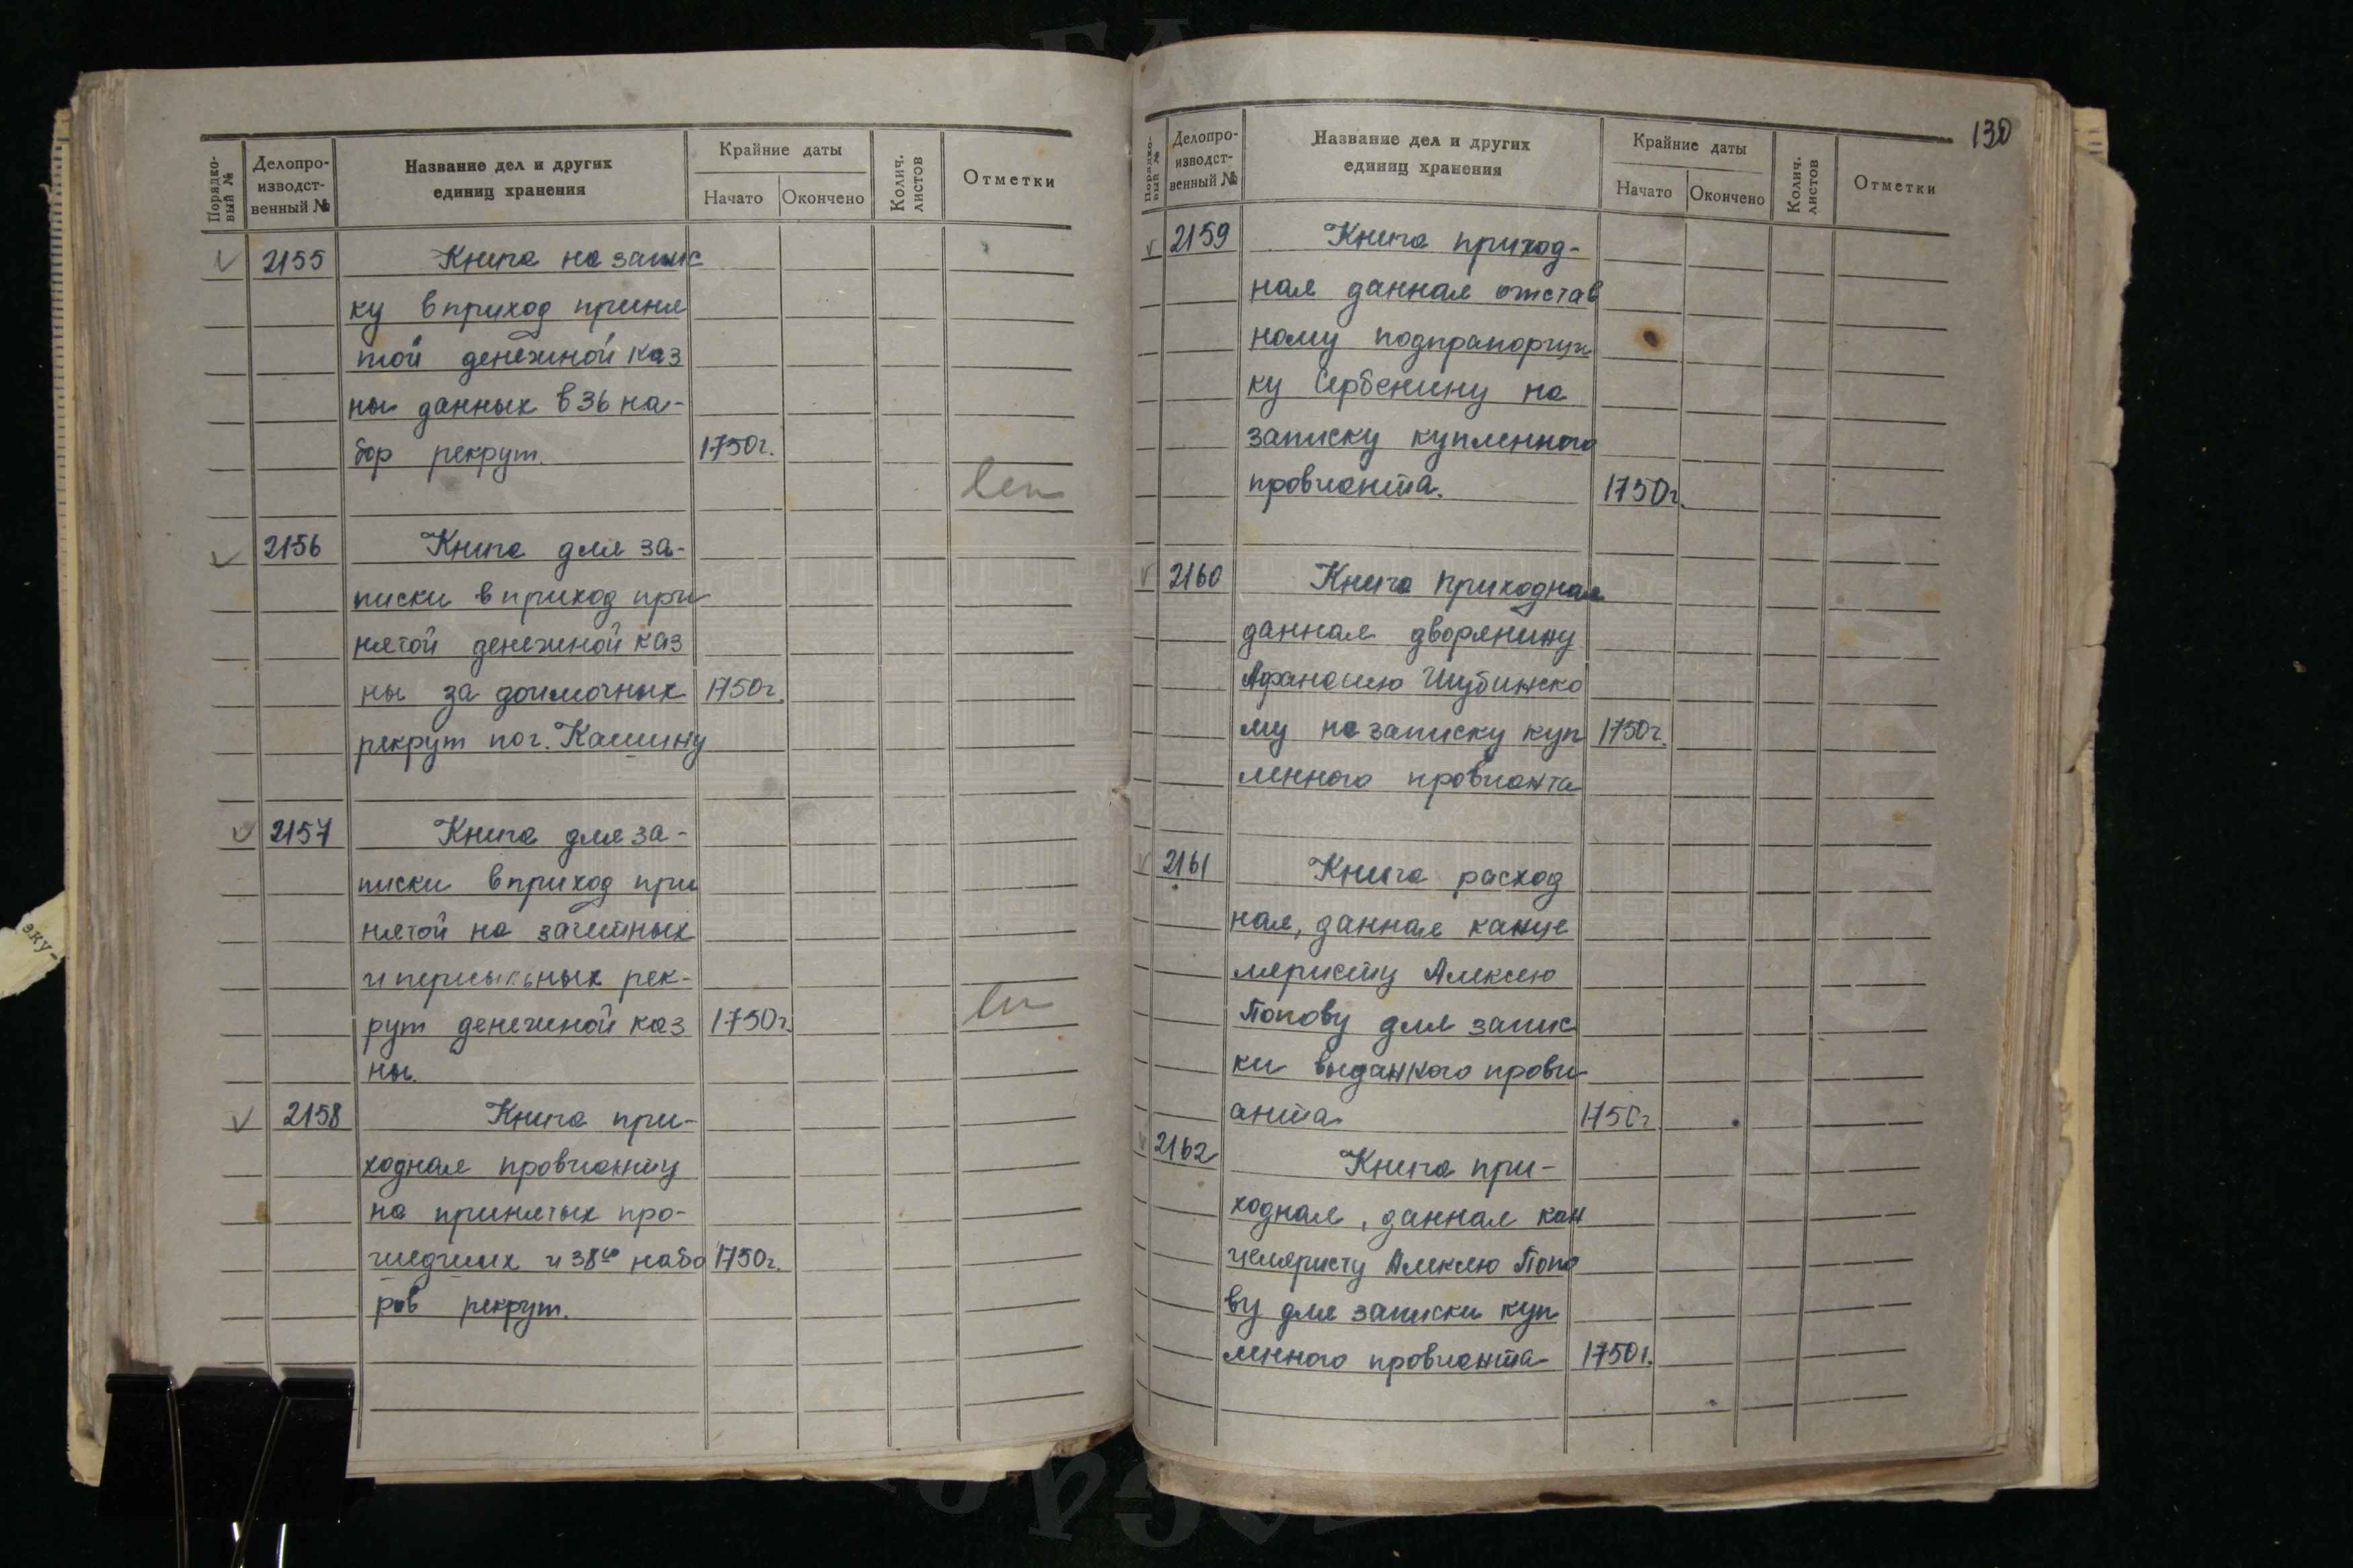 Порядко-
вый №
Делопро-
изводст-
венный №
Название дел и других
единиц хранения
Крайние даты
Начато
Окончено
Колич.
листов
Отметки
2155 Книга на запис
ку в приход приня
той денежной каз
ны данных в 36 на-
бор рекрут. 1750г.
2156 Книга для за-
писки в приход при
нятой денежной каз
ны за доимочных 1750г.
рекрут по г. Кашину
2157 Книга для за-
писки в приход при
нятой на зачетных
и пересыльных рек-
рут денежной каз 1750г.
ны.
2158 Книга при-
ходная провианту
на принятых про-
шедших и 38го набо 1750г.
ров рекрут.
130
Порядко-
вый №
Делопро-
изводст-
венный №
Название дел и других
единиц хранения
Крайние даты
Начато
Окончено
Колич.
листов
Отметки
2159 Книга приход-
ная данная отстав
ному подпрапорщи
ку Сербенину на
записку купленного
провианта. 1750г.
2160 Книга приходная
данная дворянину
Афанасию Шубинско
му на записку куп 1750г.
ленного провианта
2161 Книга расход
ная, данная канце
ляристу Алексею
Попову для запис
ки выданного прови
анта 1750г.
2162 Книга при-
ходная, данная кан
целяристу Алексею Попо
ву для записки куп
ленного провианта 1750г.
эку-